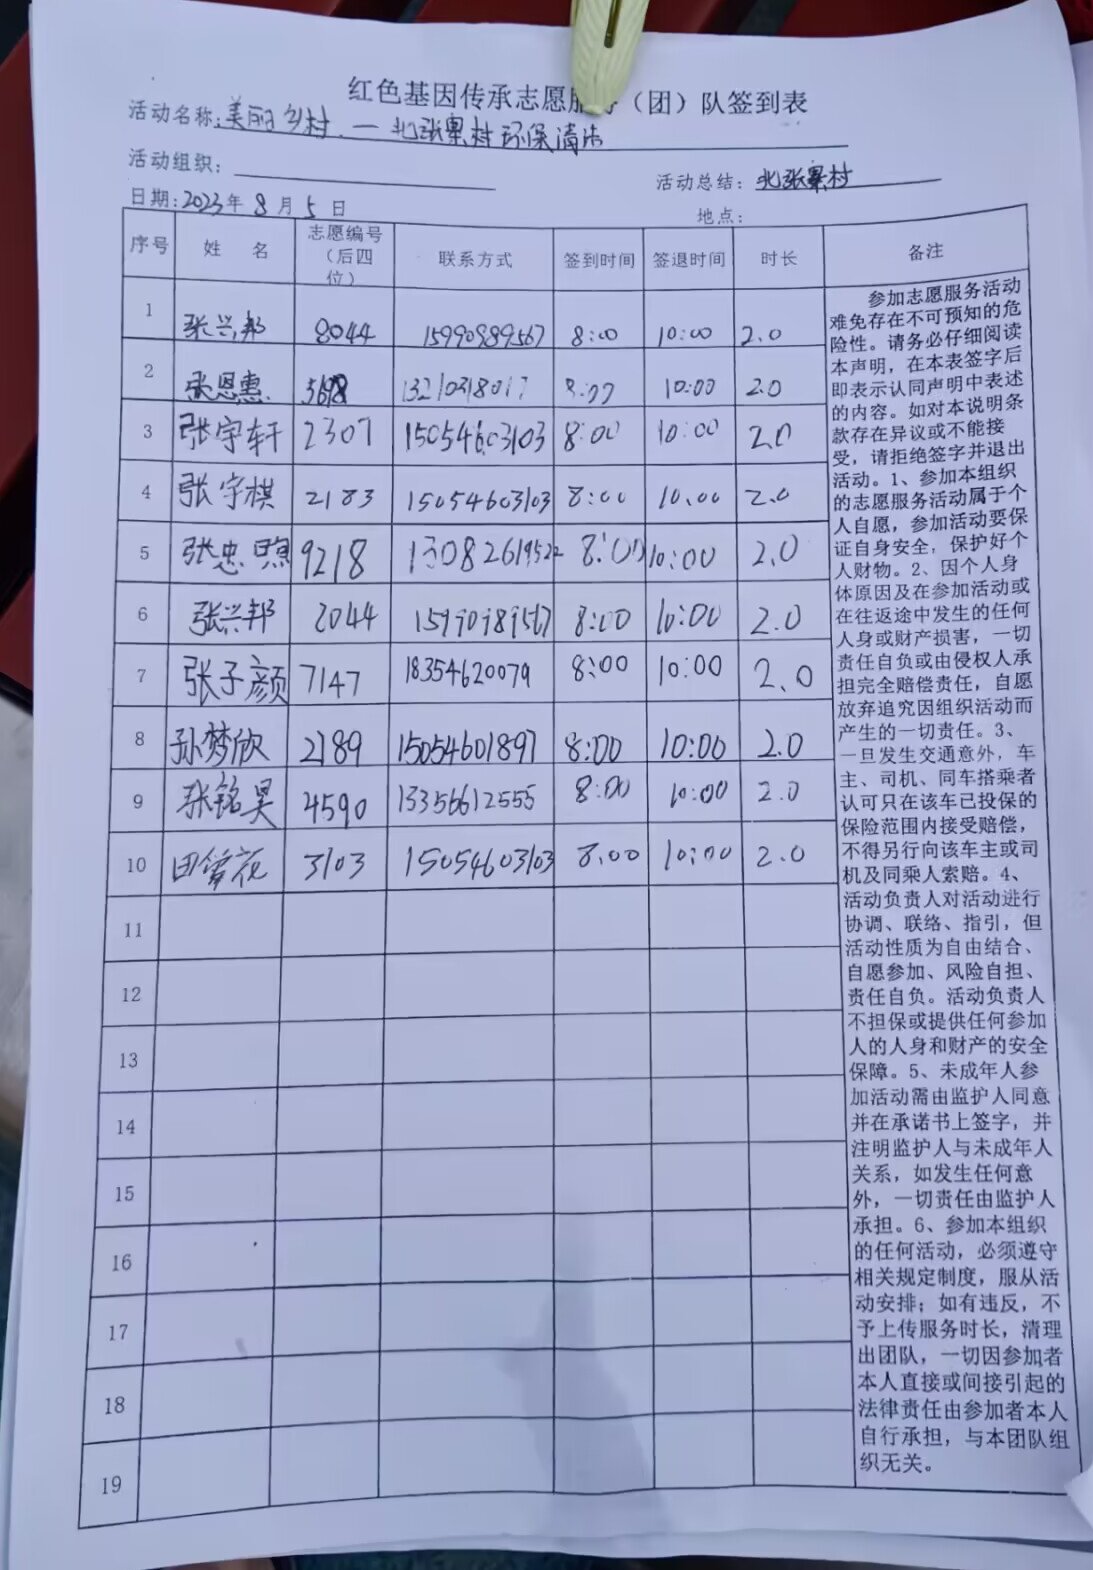 红色基因传承志愿服务（团）队签到表
活动名称:美丽乡村.—北张寨村环保清洁
活动组织:
活动总结: 北张寨村
日期:2023年 8 月 5 日
地点:
序号 姓 名 志愿编号（后四位） 联系方式 签到时间 签退时间 时长 备注
1 张兴邦 8044 15990989567 8:00 10:00 2.0
2 张恩惠 5698 13210318017 8:00 10:00 2.0
3 张宇轩 2307 15054603103 8:00 10:00 2.0
4 张宇棋 2183 15054603103 8:00 10:00 2.0
5 张忠 9218 13082619522 8:00 10:00 2.0
6 张兴邦 2044 8:00 10:00 2.0
7 张子颜 7147 18354620079 8:00 10:00 2.0
8 孙梦欣 2189 15054601897 8:00 10:00 2.0
9 张铭昊 4590 13356612555 8:00 10:00 2.0
10 田雪花 3103 15054603103 8:00 10:00 2.0
11
12
13
14
15
16
17
18
19
参加志愿服务活动
难免存在不可预知的危
险性。请务必仔细阅读
本声明，在本表签字后
即表示认同声明中表述
的内容。如对本说明条
款存在异议或不能接
受，请拒绝签字并退出
活动。1、参加本组织
的志愿服务活动属于个
人自愿，参加活动要保
证自身安全，保护好个
人财物。2、因个人身
体原因及在参加活动或
在往返途中发生的任何
人身或财产损害，一切
责任自负或由侵权人承
担完全赔偿责任，自愿
放弃追究因组织活动而
产生的一切责任。3、
一旦发生交通意外，车
主、司机、同车搭乘者
认可只在该车已投保的
保险范围内接受赔偿，
不得另行向该车主或司
机及同乘人索赔。4、
活动负责人对活动进行
协调、联络、指引，但
活动性质为自由结合、
自愿参加、风险自担、
责任自负。活动负责人
不担保或提供任何参加
人的人身和财产的安全
保障。5、未成年人参
加活动需由监护人同意
并在承诺书上签字，并
注明监护人与未成年人
关系，如发生任何意
外，一切责任由监护人
承担。6、参加本组织
的任何活动，必须遵守
相关规定制度，服从活
动安排；如有违反，不
予上传服务时长，清理
出团队，一切因参加者
本人直接或间接引起的
法律责任由参加者本人
自行承担，与本团队组
织无关。